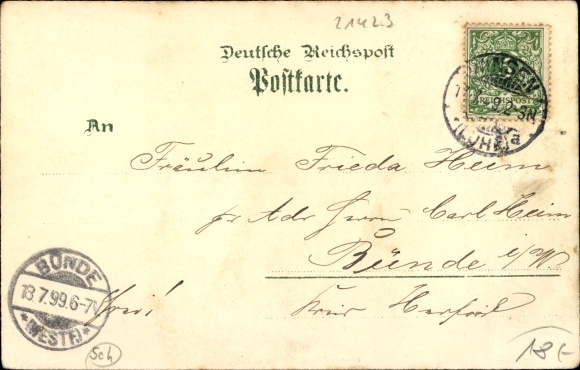 21423
Deutsche Reichspost
Postkarte.
REICHSPOST
An
Fräulein Frieda Heim
pr Adr Herrn Carl Heim
Bünde i/W
Kreis Herford
BÜNDE
13 7.99.6-7N
*(WESTF.)*
Sch
18,-